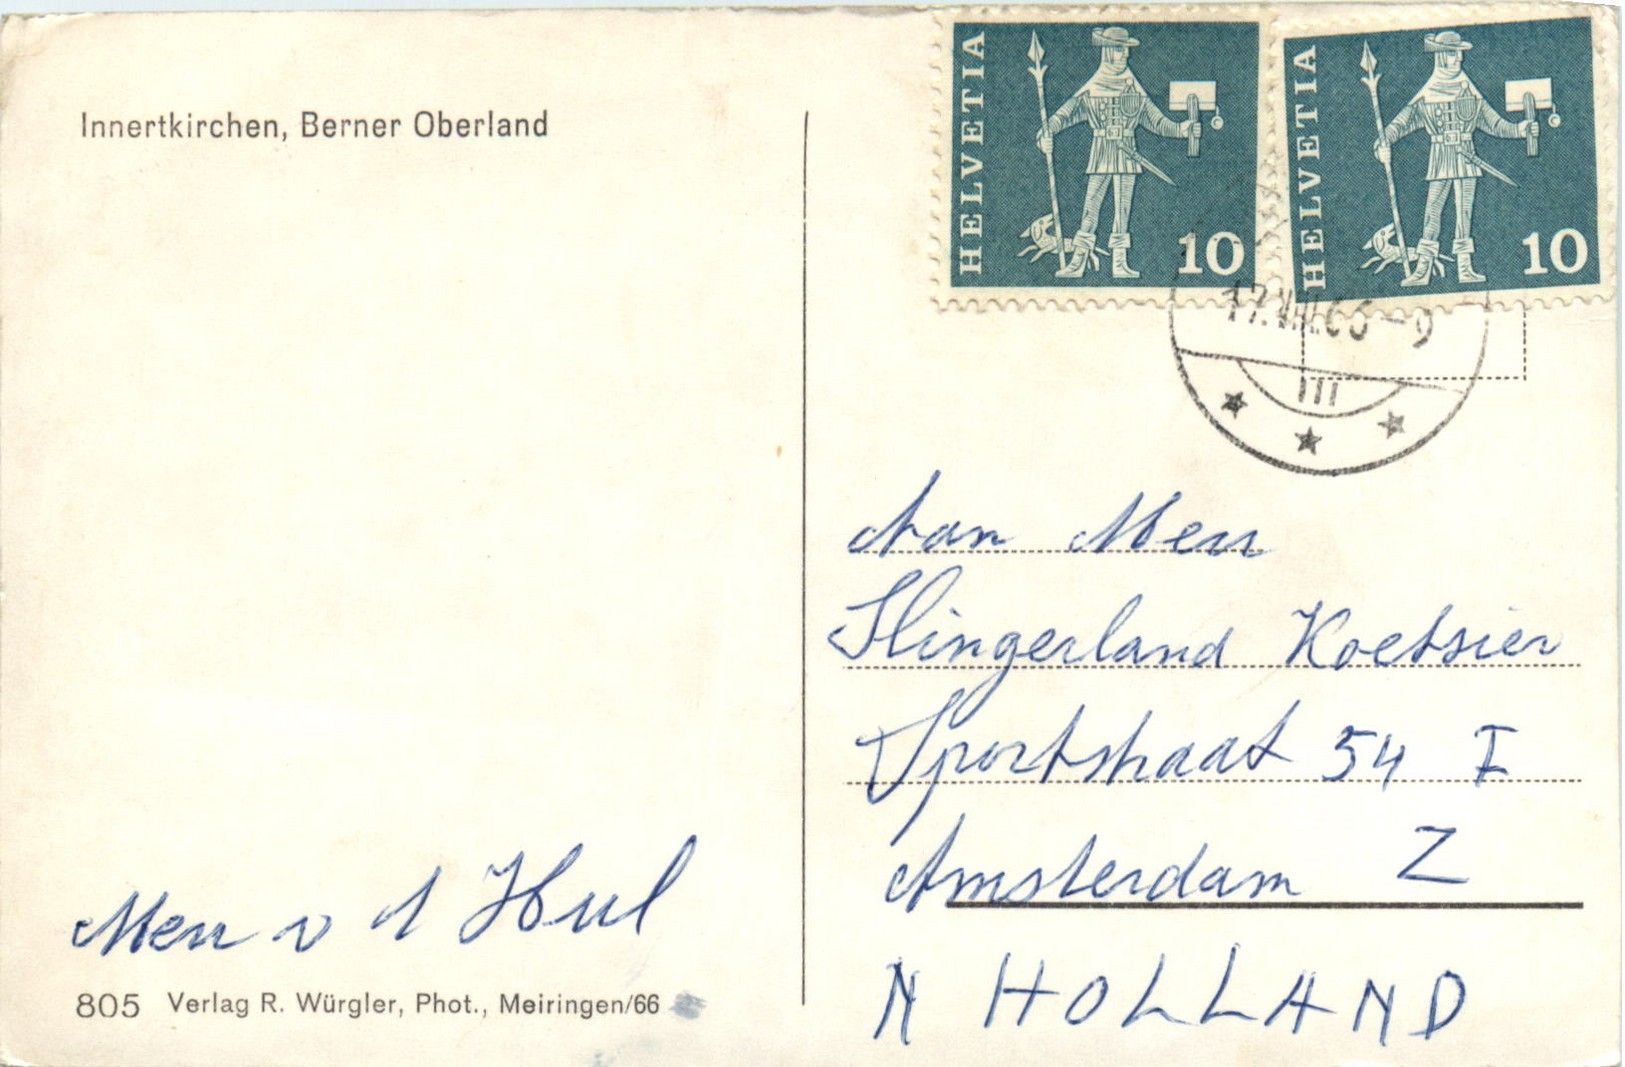 Innertkirchen, Berner Oberland
HELVETIA
10
HELVETIA
10
17.VII.66-9
Aan Men
Slingerland Koetsier
Sportstraat 54 I
Amsterdam Z
N HOLLAND
Men v d Hul
805 Verlag R. Würgler, Phot., Meiringen/66